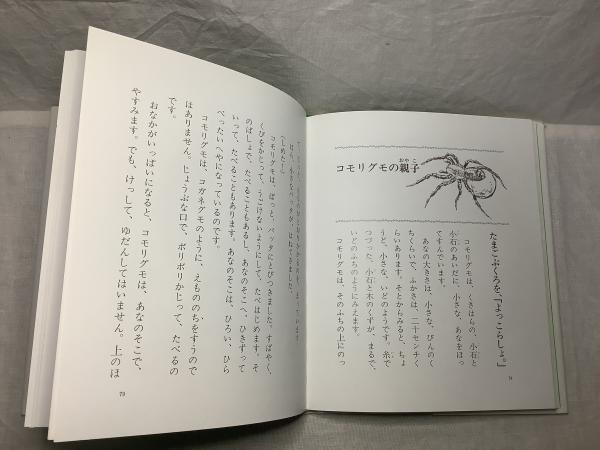 コモリグモの親子
おやこ
たまごぶくろを、「よっこらしょ。」
コモリグモは、くさはらの、小石と
小石のあいだに、小さな、あなをほっ
てすんでいます。
あなの大きさは、小さな、びんのく
ちくらいで、ふかさは、二十センチく
らいあります。そとからみると、ちょ
うど、小さな、いどのようです。糸で
つづった、小石と木のくずが、まるで、
いどのふちのようにみえます。
コモリグモは、そのふちの上にのっ
78
ほら、小さなバッタが、はねてきました。
〈しめた!〉
コモリグモは、ぱっと、バッタにとびつきました。すばやく、
くびをかじって、うごけないようにして、たべはじめます。そ
のばしょで、たべることもあるし、あなのそこへ、ひきずって
いって、たべることもあります。あなのそこは、ひろい、ひら
べったいへやになっているのです。
コモリグモは、コガネグモのように、えもののちをすうので
はありません。じょうぶな口で、ボリボリかじって、たべるの
です。
おなかがいっぱいになると、コモリグモは、あなのそこで、
やすみます。でも、けっして、ゆだんしてはいません。上のほ
79